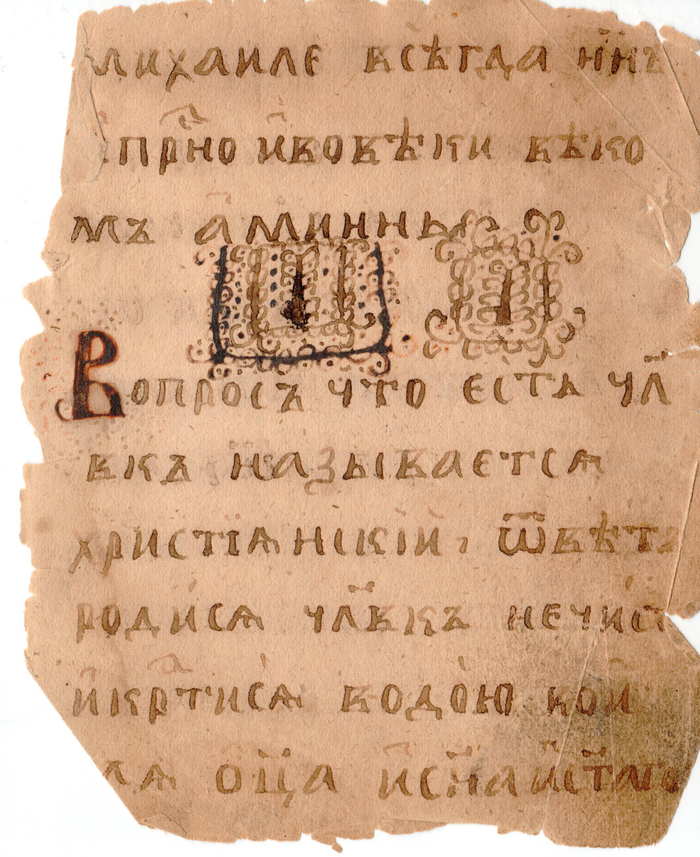 михаиле всѣгда нн҃ѣ
прн҃о ивовѣки вѣко
мъ аминнь
Вопросъ что естъ чл҃
вкъ называется
християнскїи, ѿвѣтъ
родися чл҃вкъ нечис
икр҃тися водою вои
мя ѻц҃а исн҃аист҃аго